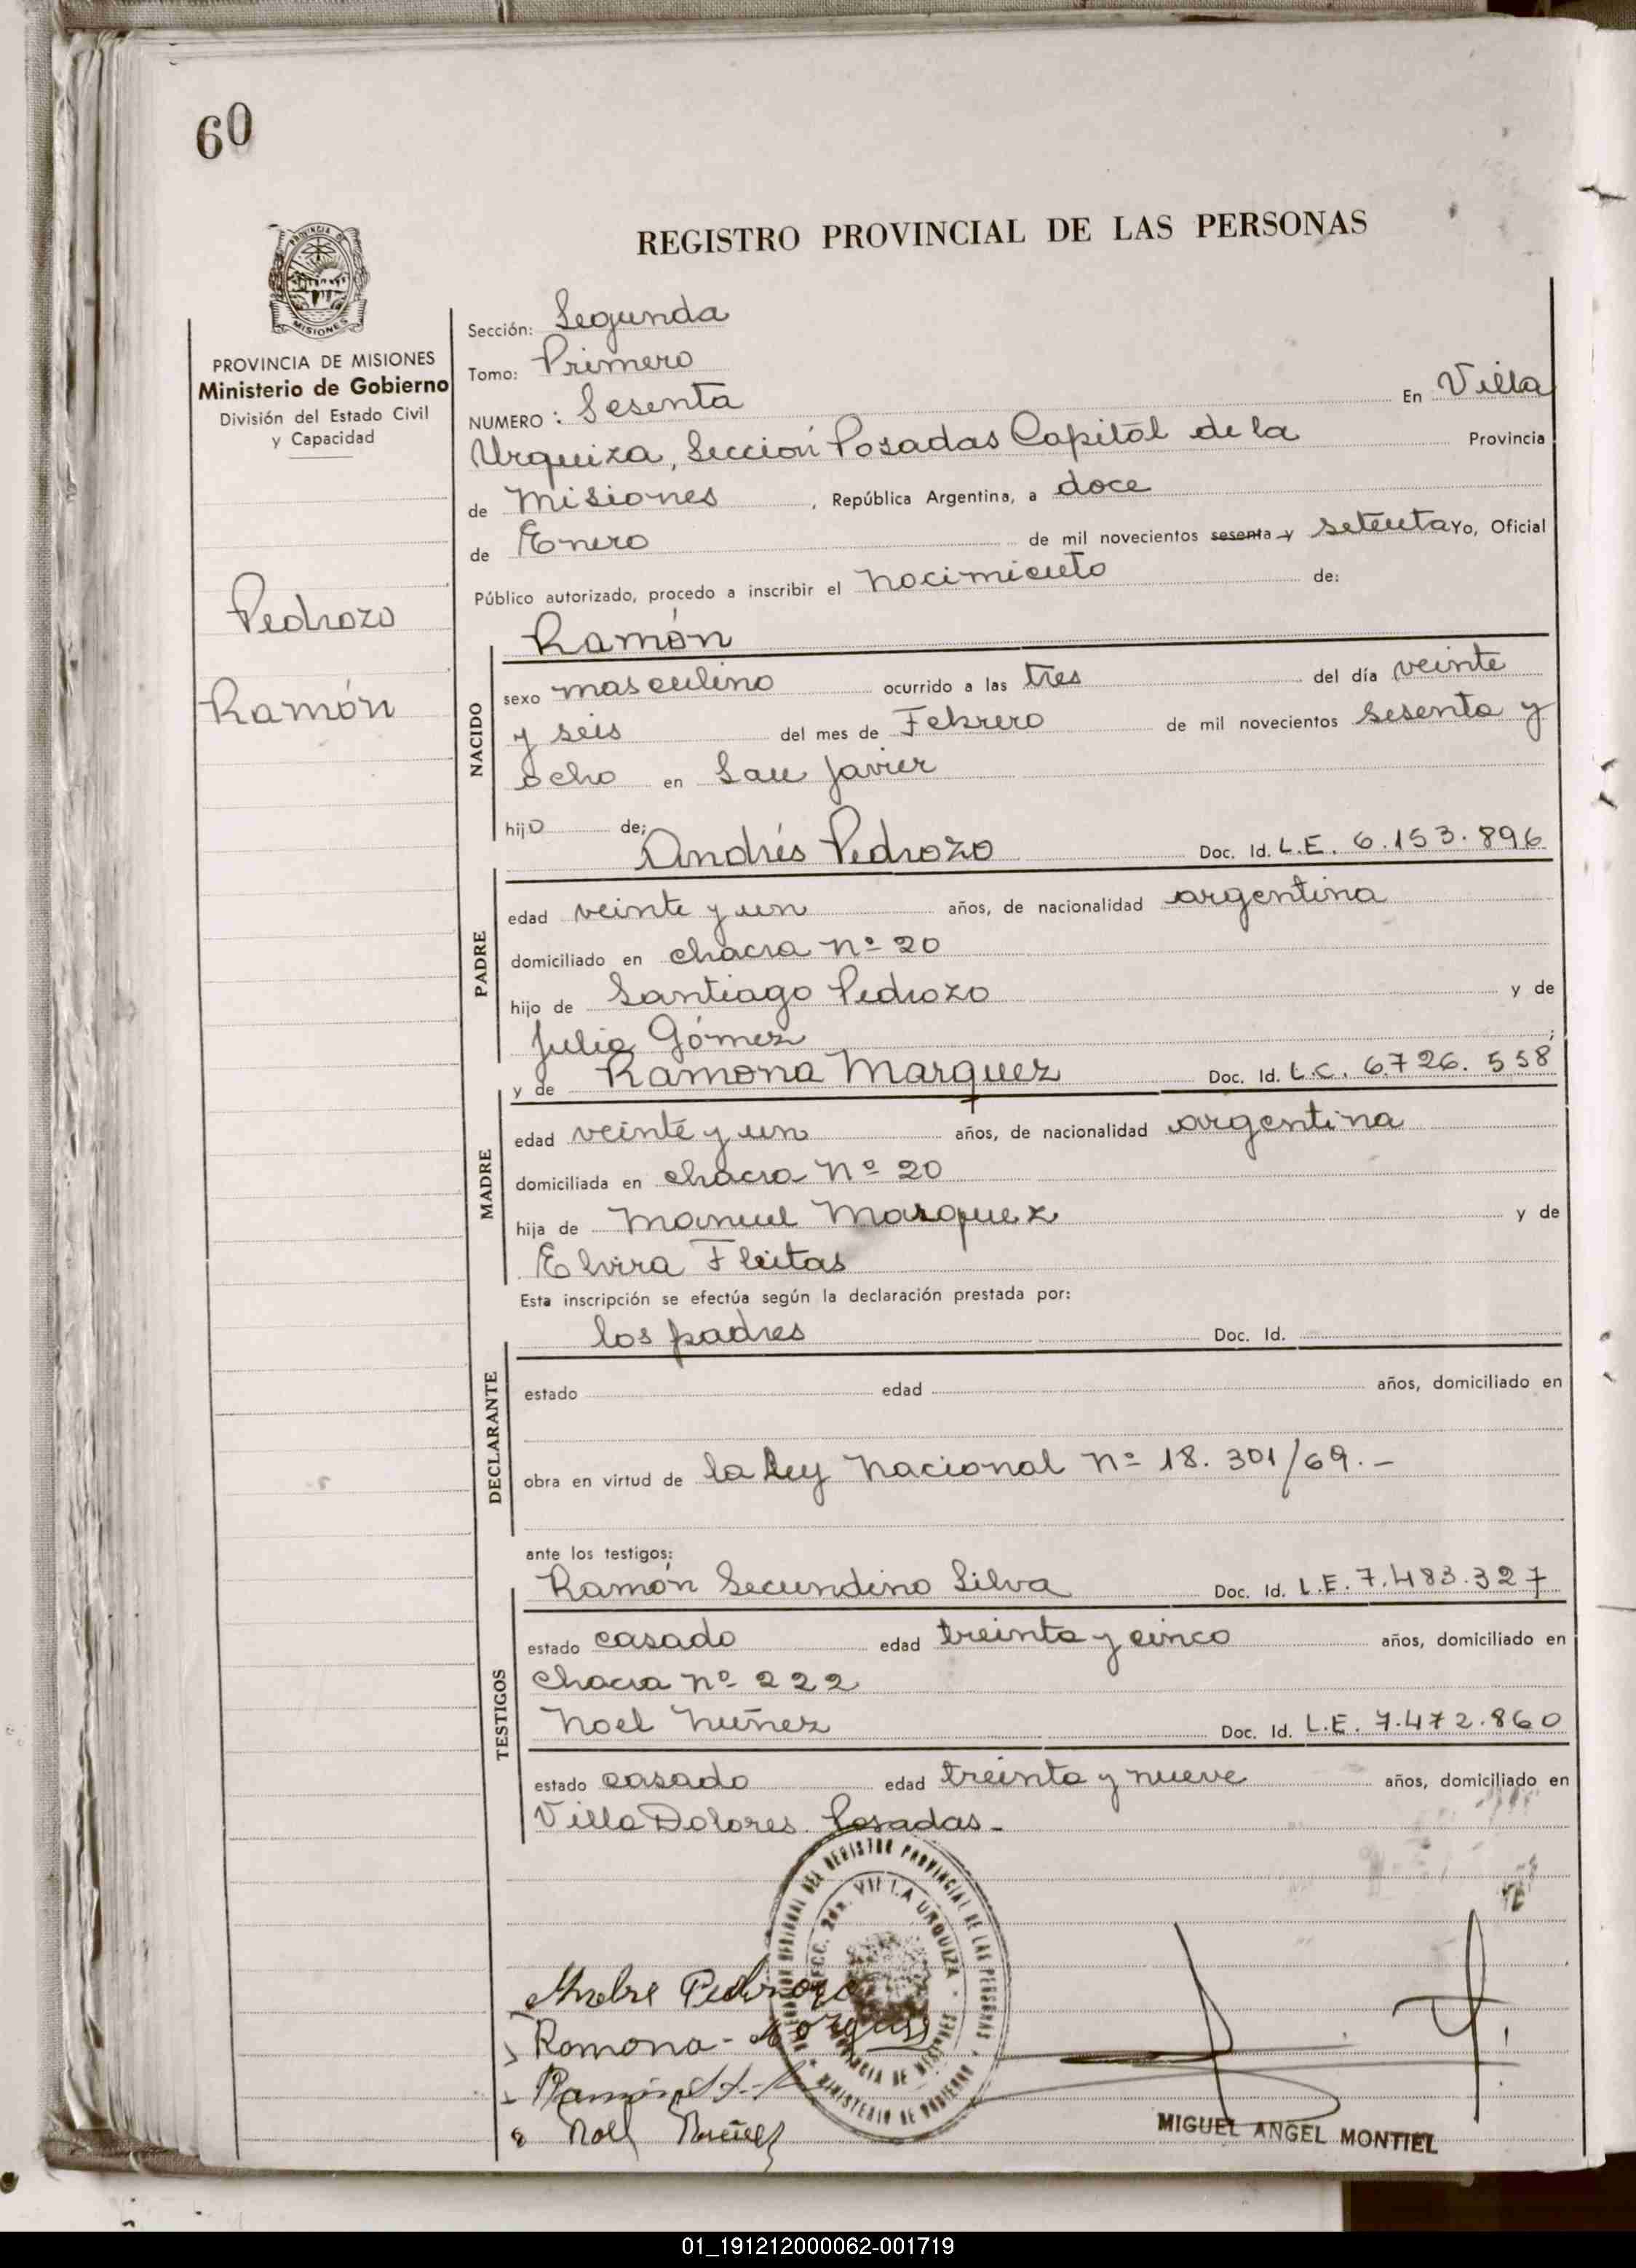 60
REGISTRO PROVINCIAL DE LAS PERSONAS
PROVINCIA DE MISIONES
Ministerio de Gobierno
División del Estado Civil
y Capacidad
Pedrozo
Ramón
Sección: Segunda
Tomo: Primero
NUMERO: Sesenta En Villa
Urquiza, Sección Posadas Capital de la Provincia
de Misiones, República Argentina, a doce
de Enero de mil novecientos sesenta y setenta Yo, Oficial
Público autorizado, procedo a inscribir el nacimiento de:
Ramón
NACIDO
sexo masculino ocurrido a las tres del día veinte
y seis del mes de Febrero de mil novecientos sesenta y
ocho en San Javier
hijo de; Andrés Pedrozo Doc. Id. L.E. 6.153.896
PADRE
edad veinte y un años, de nacionalidad argentina
domiciliado en chacra Nº 20
hijo de Santiago Pedrozo y de
Julia Gómez;
y de Ramona Marquez Doc. Id. L.C. 6.726.558
MADRE
edad veinte y un años, de nacionalidad argentina
domiciliada en chacra Nº 20
hija de Manuel Marquez y de
Elvira Fleitas
Esta inscripción se efectúa según la declaración prestada por:
los padres Doc. Id.
DECLARANTE
estado edad años, domiciliado en
obra en virtud de la Ley Nacional Nº 18.301/69.-
ante los testigos:
Ramón Secundino Silva Doc. Id. L.E. 7.483.327
TESTIGOS
estado casado edad treinta y cinco años, domiciliado en
chacra Nº 222
Noel Nuñez Doc. Id. L.E. 7.472.860
estado casado edad treinta y nueve años, domiciliado en
Villa Dolores. Posadas-
REGISTRO PROVINCIAL DE LAS PERSONAS
VILLA URQUIZA
PROVINCIA DE MISIONES
MINISTERIO DE GOBIERNO
Andre Pedrozo
Ramona - Marques
Ramón
Noel Nuñez
MIGUEL ANGEL MONTIEL
01_191212000062-001719